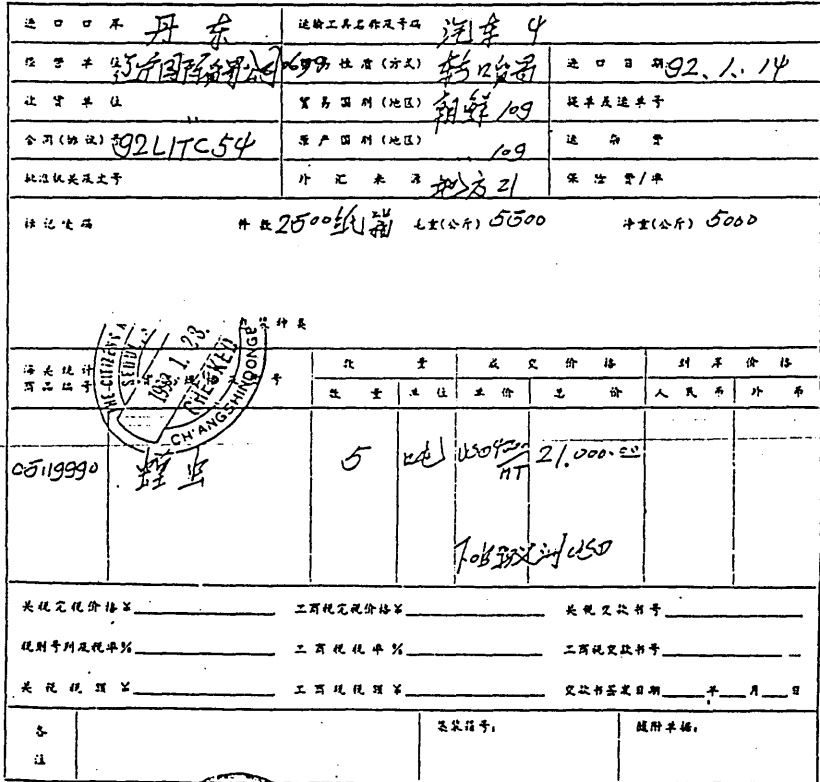 进口口岸 丹东 运输工具名称及号码 汽车 4
经营单位 贸易性质(方式) 转口贸易 进口日期 92.1.14
收货单位 贸易国别(地区) 朝鲜 109 提单及运单号
合同(协议)号 92LITC54 原产国别(地区) 109 运杂费
批准机关及文号 外汇来源 地方 21 保险费/率
标记唛码 件数 2500纸箱 毛重(公斤) 5500 净重(公斤) 5000
THE CITIZEN'S
SEOUL
1992. 1. 23.
CHECKED
CH'ANGSHINDONG
海关统计商品编号 数量 成交价格 到岸价格
数量 单位 单价 总价 人民币 外币
05119990 蝗虫 5 吨 MT 21.000.00
USD
关税完税价格¥ 工商税完税价格¥ 关税交款书号
税则号列及税率% 工商税税率% 工商税交款书号
关税税额¥ 工商税税额¥ 交款书签发日期 年 月 日
备注 集装箱号: 随附单据: